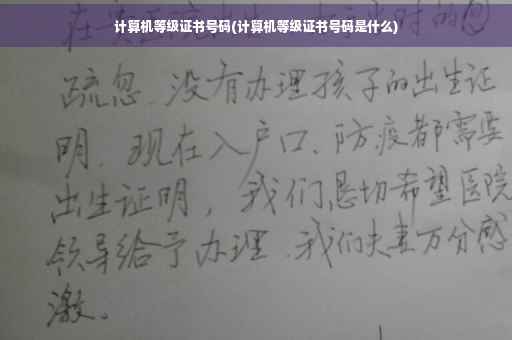 计算机等级证书号码(计算机等级证书号码是什么)
疏忽、没有办理孩子的出生证
明、现在入户口、防疫都需要
出生证明，我们恳切希望医院
领导给予办理、我们夫妻万分感
激。